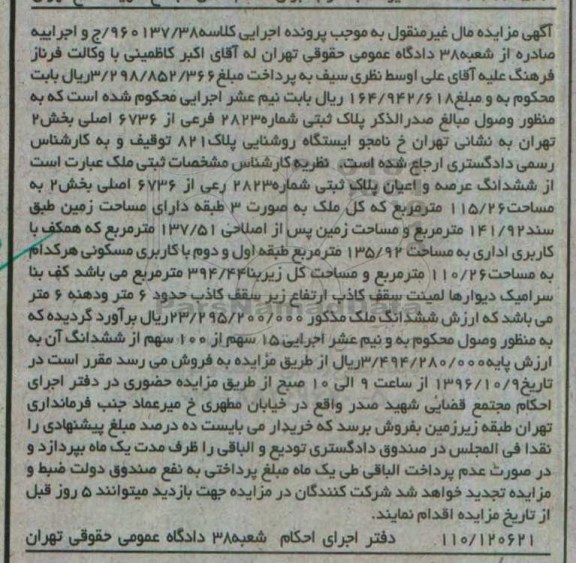 آگهی مزایده مال غیرمنقول به موجب پرونده اجرایی کلاسه۹۶۰۱۳۷/۳۸/ج و اجراییه
صادره از شعبه۳۸ دادگاه عمومی حقوقی تهران له آقای اکبر کاظمینی با وکالت فرناز
فرهنگ علیه آقای علی اوسط نظری سیف به پرداخت مبلغ۳/۲۹۸/۸۵۲/۳۶۶ریال بابت
محکوم به و مبلغ۱۶۴/۹۴۲/۶۱۸ ریال بابت نیم عشر اجرایی محکوم شده است که به
منظور وصول مبالغ صدرالذکر پلاک ثبتی شماره۲۸۲۳ فرعی از ۶۷۳۶ اصلی بخش۲
تهران به نشانی تهران خ نامجو ایستگاه روشنایی پلاک۸۲۱ توقیف و به کارشناس
رسمی دادگستری ارجاع شده است. نظریه کارشناس مشخصات ثبتی ملک عبارت است
از ششدانگ عرصه و اعیان پلاک ثبتی شماره۲۸۲۳ رعی از ۶۷۳۶ اصلی بخش۲ به
مساحت۱۱۵/۲۶ مترمربع که کل ملک به صورت ۳ طبقه دارای مساحت زمین طبق
سند۱۴۱/۹۲ مترمربع و مساحت زمین پس از اصلاحی ۱۳۷/۵۱ مترمربع که همکف با
کاربری اداری به مساحت ۱۳۵/۹۲ مترمربع طبقه اول و دوم با کاربری مسکونی هرکدام
به مساحت۱۱۰/۲۶ مترمربع و مساحت کل زیربنا۳۹۴/۴۴ مترمربع می باشد کف بنا
سرامیک دیوارها لمینت سقف کاذب ارتفاع زیر سقف کاذب حدود ۶ متر ودهنه ۶ متر
می باشد که ارزش ششدانگ ملک مذکور ۲۳/۲۹۵/۲۰۰/۰۰۰ریال برآورد گردیده که
به منظور وصول محکوم به و نیم عشر اجرایی ۱۵ سهم از ۱۰۰ سهم از ششدانگ آن به
ارزش پایه۳/۴۹۴/۲۸۰/۰۰۰ریال از طریق مزایده به فروش می رسد مقرر است در
تاریخ۱۳۹۶/۱۰/۹ از ساعت ۹ الی ۱۰ صبح از طریق مزایده حضوری در دفتر اجرای
احکام مجتمع قضایی شهید صدر واقع در خیابان مطهری خ میرعماد جنب فرمانداری
تهران طبقه زیرزمین بفروش برسد که خریدار می بایست ده درصد مبلغ پیشنهادی را
نقدا فی المجلس در صندوق دادگستری تودیع و الباقی را ظرف مدت یک ماه بپردازد و
در صورت عدم پرداخت الباقی طی یک ماه مبلغ پرداختی به نفع صندوق دولت ضبط و
مزایده تجدید خواهد شد شرکت کنندگان در مزایده جهت بازدید میتوانند ۵ روز قبل
از تاریخ مزایده اقدام نمایند.
۱۱۰/۱۲۰۶۲۱ دفتر اجرای احکام شعبه۳۸ دادگاه عمومی حقوقی تهران